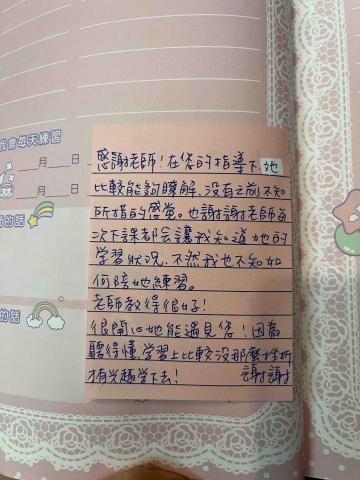 我會每天練習
___月___日
___月___日
的話
的話
感謝老師!在您的指導下,她
比較能夠瞭解,沒有之前不知
所措的感覺。也謝謝老師每
次下課都會讓我知道她的
學習狀況,不然我也不知如
何陪她練習。
老師教得很好!
很開心她能遇見您!因為
聽得懂,學習上比較沒那麼挫折
才有興趣學下去! 謝謝